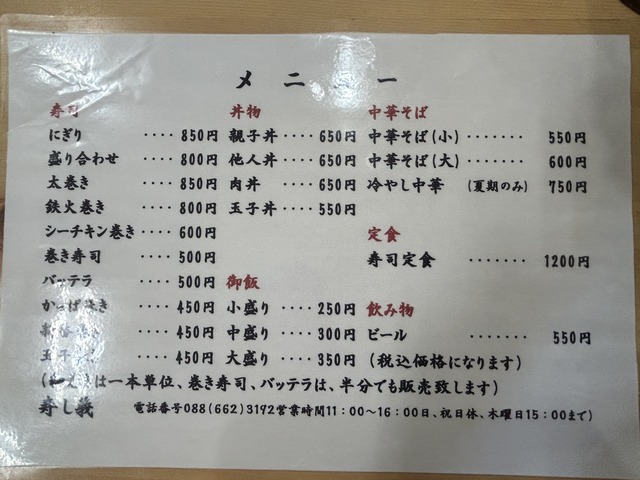 メニュー
寿司
にぎり ････ 850円
盛り合わせ ････ 800円
太巻き ････ 850円
鉄火巻き ････ 800円
シーチキン巻き ････ 600円
巻き寿司 ････ 500円
バッテラ ････ 500円
かっぱ巻き ････ 450円
････ 450円
玉子 ････ 450円
丼物
親子丼 ････ 650円
他人丼 ････ 650円
肉丼 ････ 650円
玉子丼 ････ 550円
御飯
小盛り ････ 250円
中盛り ････ 300円
大盛り ････ 350円
中華そば
中華そば(小) ･･･････ 550円
中華そば(大) ･･･････ 600円
冷やし中華 (夏期のみ) 750円
定食
寿司定食 ･･･････ 1200円
飲み物
ビール ･･･････ 550円
(税込価格になります)
は一本単位、巻き寿司、バッテラは、半分でも販売致します)
寿し義 電話番号088(662)3192営業時間11:00～16:00日、祝日休、木曜日15:00まで)